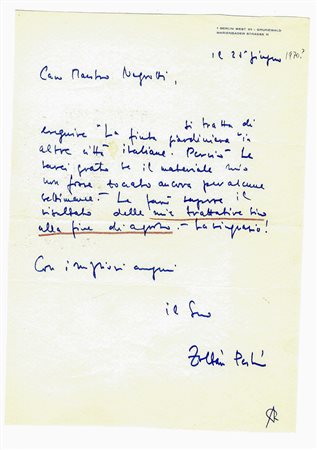 1 BERLIN WEST 33 - GRUNEWALD
MARIENBADER STRASSE 11
il 21 Giugno 1970?
Caro Maestro Negrotti,
si tratta di
eseguire "La finta giardiniera" in
altre città italiane. Perciò - Le
sarei grato se il materiale mio
non fosse toccato ancora per alcune
settimane. - Le farò sapere il
risultato delle mie trattative sino
alla fine di agosto. - La ringrazio!
Con i migliori auguri
il Suo
Zoltán